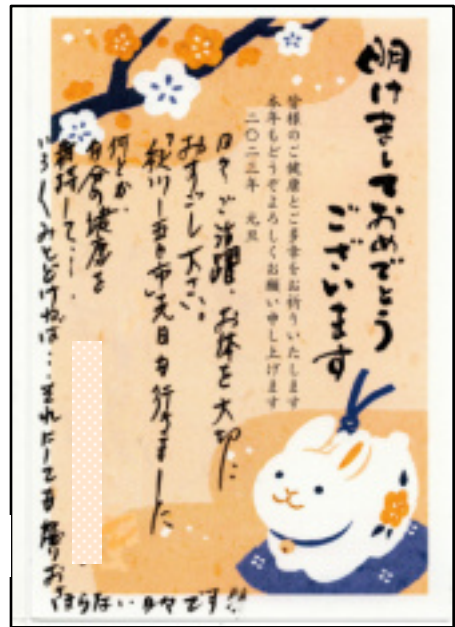 明けましておめでとう
ございます
皆様のご健康とご多幸をお祈りいたします
本年もどうぞよろしくお願い申し上げます
二〇二三年 元旦
日々ご活躍、お体を大切に
おすごし下さい。
先日も行きました
何とか
健康を
維持して…
みとどけねば…それにしても
ならない日々です!!